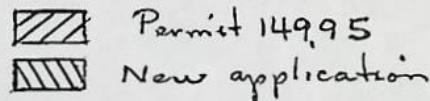 Permit 149,95
New application